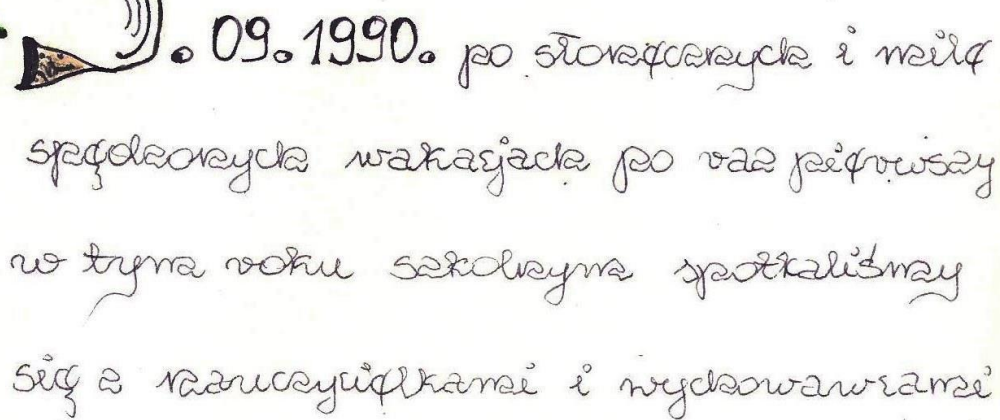 . 09.1990. po słonecznych i mile
spędzonych wakacjach po raz pierwszy
w tym roku szkolnym spotkaliśmy
się z nauczycielkami i wychowawcami